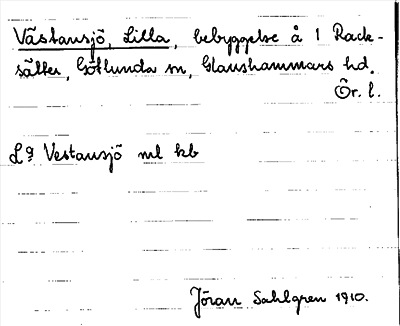 Västansjö, Lilla, bebyggelse å 1 Rack-
sätter, Götlunda sn, Glanshammars hd.
Ör. l.
Lª Vestansjö ml kb
Jöran Sahlgren 1910.